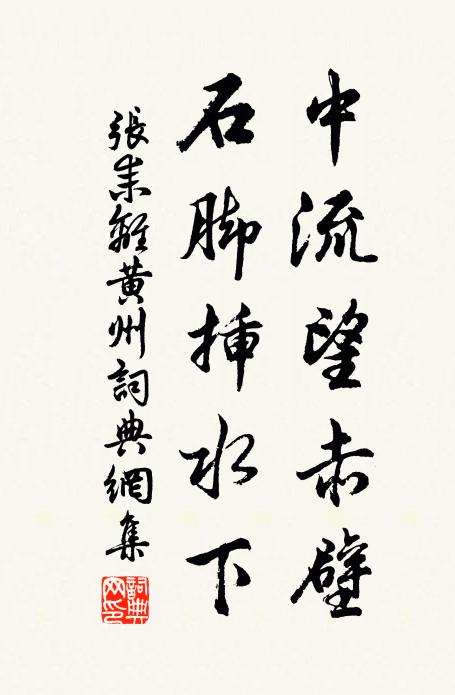 中流望赤壁
石脚插水下
張耒離黄州詞典網集
詞典网印